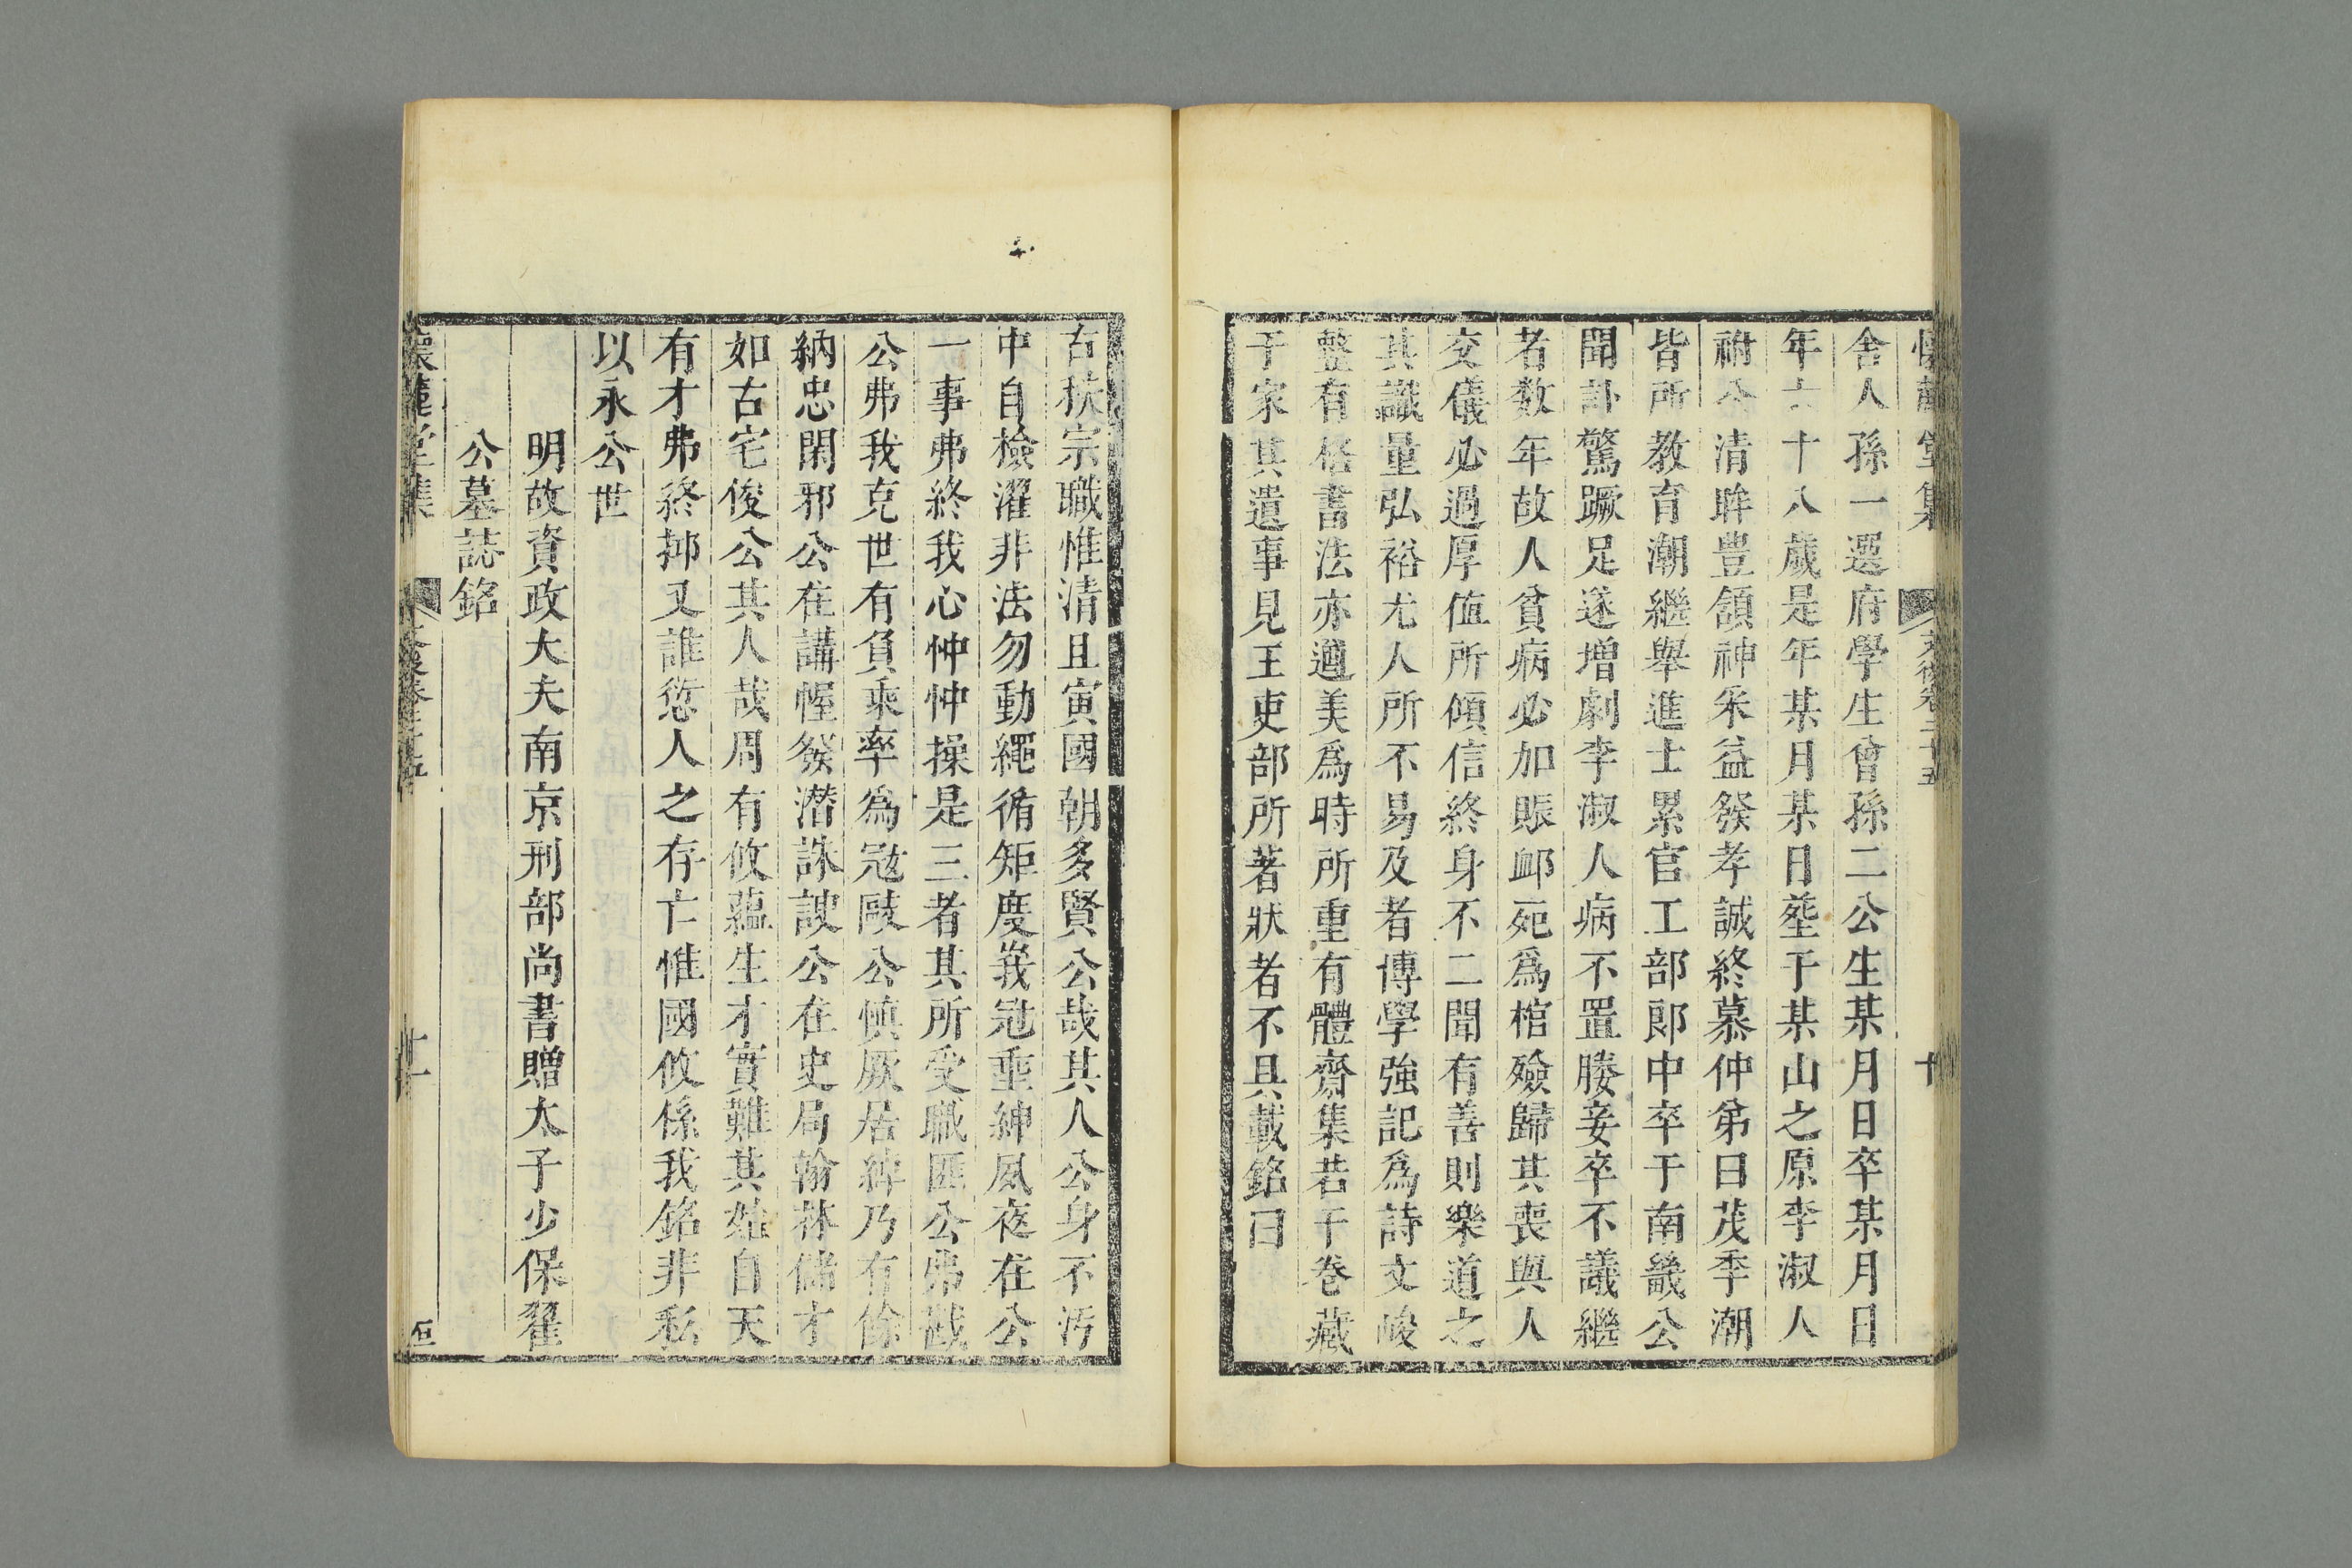 懷麓堂集 文後卷二十五 十
舍人孫一選府學生曾孫二公生某月日卒某月日
年六十八歲是年某月某日塟于某山之原李淑人
祔公清眸豊頷神采益發孝誠終慕仲弟曰茂季潮
皆所教育潮繼舉進士累官工部郞中卒于南畿公
聞訃驚蹶足遂增劇李淑人病不置媵妾卒不議繼
者数年故人貧病必加賑䘏死爲棺殮歸其喪與人
交儀必過厚值所傾信終身不二聞有善則樂道之
其識量弘裕尤人所不易及者博學強記爲詩文峻
整有格書法亦遒美爲時所重有體齋集若干卷藏
于家其遺事見王吏部所著狀者不具載銘曰
古秩宗職惟清且寅國朝多賢公哉其人公身不汚
中自檢濯非法勿動繩循矩度峩冠垂紳夙夜在公
一事弗終我心忡忡操是三者其所受職匪公弗戡
公弗我克世有負乘率爲冦敺公愼厥居綽乃有餘
納忠閑邪公在講幄發潛誅諛公在史局翰林儲才
如古宅俊公其人哉周有攸蘊生才實難其始自天
有才弗終抑又誰愆人之存亡惟國攸係我銘非私
以永公世
明故資政大夫南京刑部尚書贈太子少保翟
公墓誌銘
懷麓堂集 文後卷二十五 十一